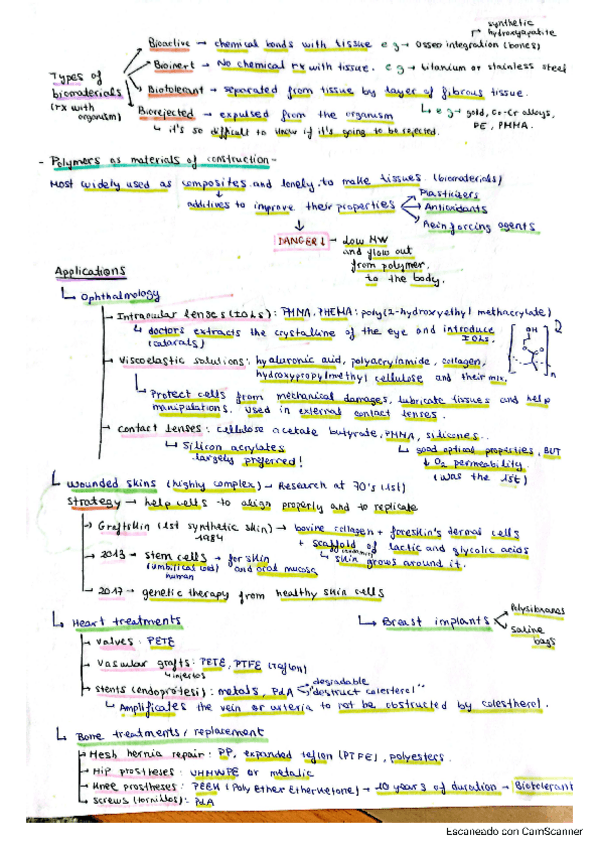 synthetic
hydroxyapatite
Bioactive → chemical bonds with tissue e g → osseo integration (bones)
Bioinert → No chemical rx with tissue. e g → titanium or stainless steel
Types of
biomaterials
(rx with
organism)
Biotolerant → separated from tissue by layer of fibrous tissue.
Biorejected → expulsed from the organism
↳ e g → gold, Co-Cr alloys,
PE, PMMA.
↳ it's so difficult to know if it's going to be rejected.
- Polymers as materials of construction -
Most widely used as composites and lonely to make tissues (biomaterials)
additives to improve their properties
Plasticizers
Antioxidants
Reinforcing agents
DANGER! → Low MW
and flow out
from polymer
to the body.
Applications
↳ Ophthalmology
Intraocular lenses (IOLs): PMMA, PHEMA: poly(2-hydroxyethyl methacrylate)
↳ doctors extracts the crystalline of the eye and introduce
IOLs.
(catarats)
OH
n
Viscoelastic solutions: hyaluronic acid, polyacrylamide, collagen,
hydroxypropylmethyl cellulose and their mix.
↳ Protect cells from mechanical damages, lubricate tissues and help
manipulations. Used in external contact lenses.
contact lenses: cellulose acetate butyrate, PMMA, silicones..
↳ Silicon acrylates
largely preferred!
↳ good optical properties, BUT
↓ O2 permeability
(was the 1st)
↳ Wounded skins (highly complex) → Research at 70's (1st)
strategy → help cells to align properly and to replicate
Graftskin (1st synthetic skin) → bovine collagen + foreskin's dermal cells
1984
+ scaffold of lactic and glycolic acids
↳ skin grows around it.
2013 → stem cells → for skin
(umbilical cord) and oral mucosa
human
2017 → genetic therapy from healthy skin cells
↳ Heart treatments
↳ Breast implants
Polysiloxanes
saline
bags
valves: PETE
Vascular grafts: PETE, PTFE (teflon)
↳ injertos
stents (endoprótesi): metals, PdA
degradable
"destruct colesterol"
↳ Amplificates the vein or arteria to not be obstructed by colestherol.
↳ Bone treatments / replacement
Mesh hernia repair: PP, expanded teflon (PTFE), polyesters.
Hip prostheses: UHMWPE or metalic
Knee prostheses: PEEK (Poly Ether EtherKetone) → 10 years of duration → Biotolerant
screws (tornillos): PdA
Escaneado con CamScanner